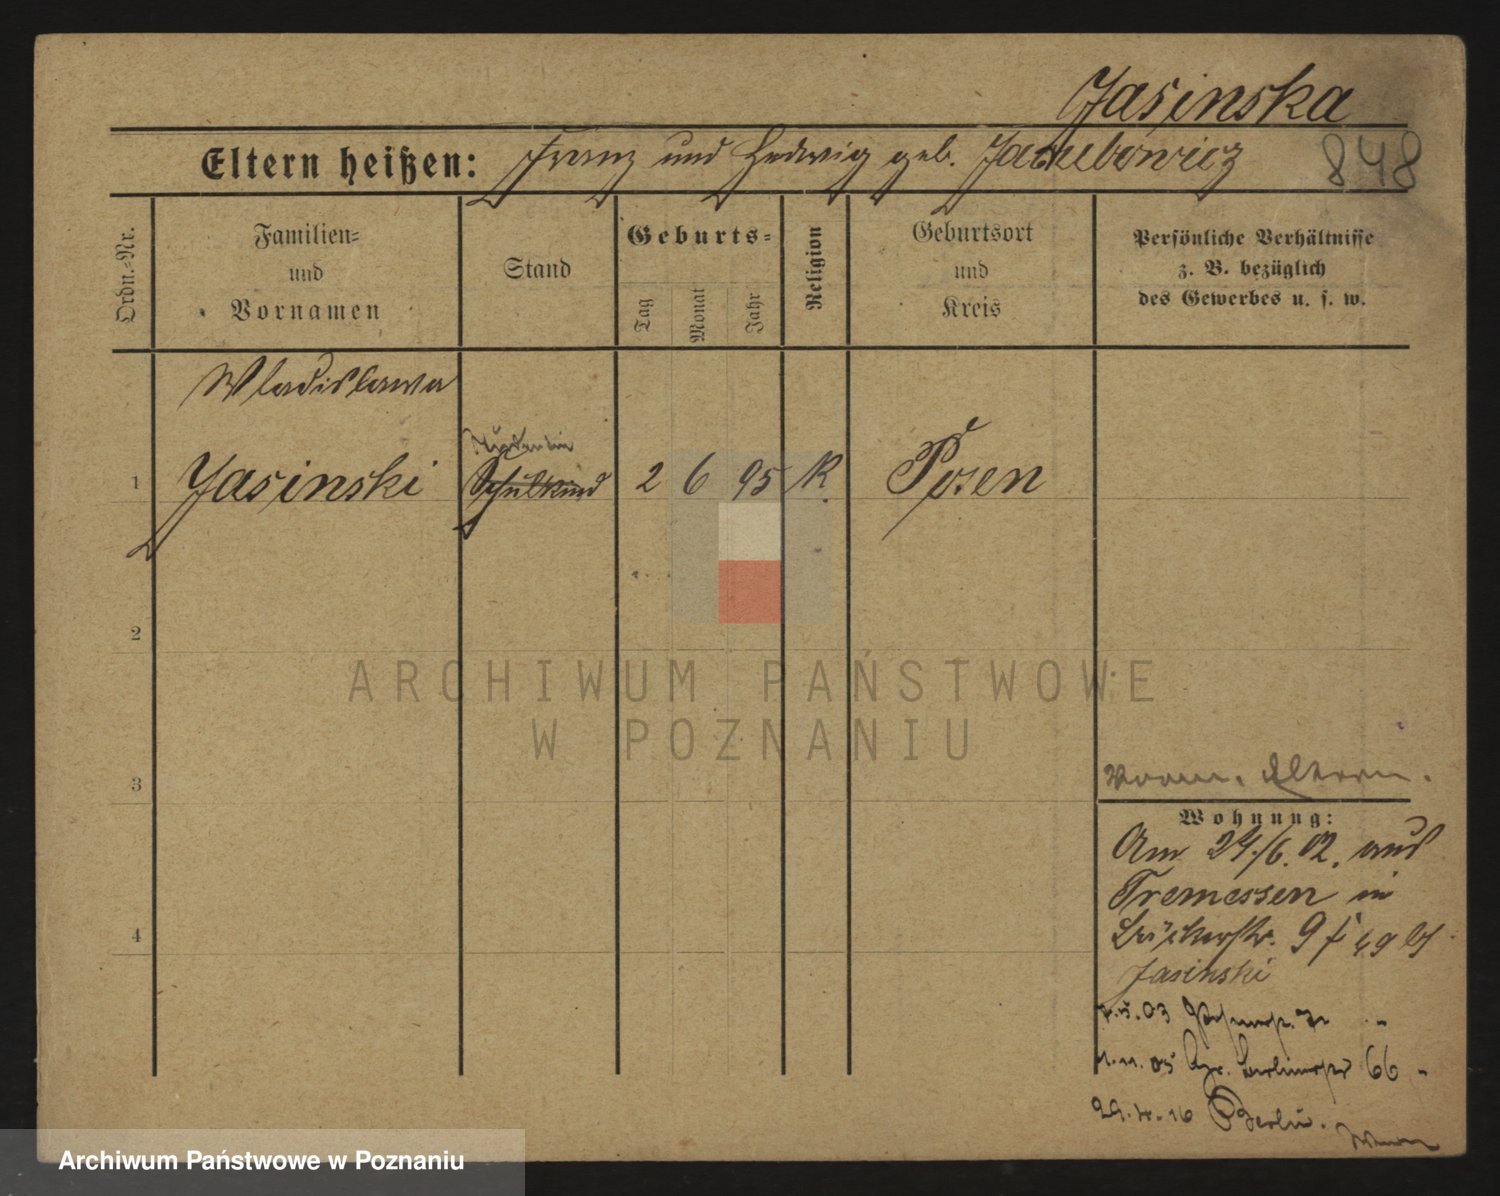 Jasinska
Eltern heißen: Franz und Hedwig geb. Jakubowicz 848
Ordn.-Nr.
Familien-
und
Vornamen
Stand
Geburts-
Tag
Monat
Jahr
Religion
Geburtsort
und
Kreis
Persönliche Verhältnisse
z. B. bezüglich
des Gewerbes u. s. w.
Wladislawa
Studentin
1 Jasinski Schulkind 2 6 95 K. Posen
2
3
4
ARCHIWUM PAŃSTWOWE
W POZNANIU
Eltern.
Wohnung:
Am 24./6. 02. aus
Tremessen in
Bäckerstr. 9
Jasinski
03
11. 05 66 "
16 Berlin.
Archiwum Państwowe w Poznaniu